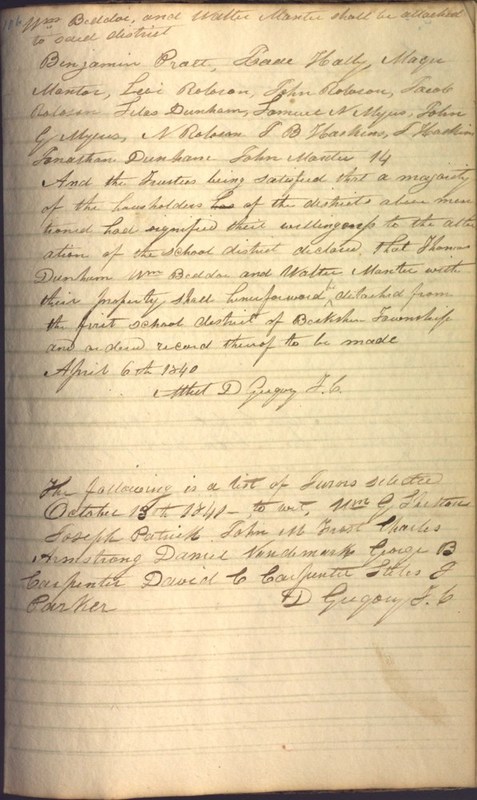 106 Wm Beddoe, and Walter Manter shall be attached
to said district
Benjamin Pratt, Hally, Major
Manter, Levi Roloson, John Roloson, Jacob
Roloson Silas Dunham, Samuel N Myers, John
G Myers, N Roloson T B Haskins, S Haskins
Jonathan Dunham John Manter 14
And the trustees being satisfied that a majority
of the housholders of the districts above men
tioned had signified their willingness to the alter
ation of the school district declared, that Thomas
Dunham Wm Beddoe and Walter Manter with
their property shall henceforward be detached from
the first school district of Berkshire Township
and ordered record thereof to be made
April 6th 1840
Attest D Gregory T. C.
The following is a list of Jurors selected
October 13th 1840 - to wit, Wm G
Joseph Patrick, John M Frost Charles
Armstrong Daniel Vandemark George B
Carpenter David C Carpenter Stiles
Parker D Gregory T. C.